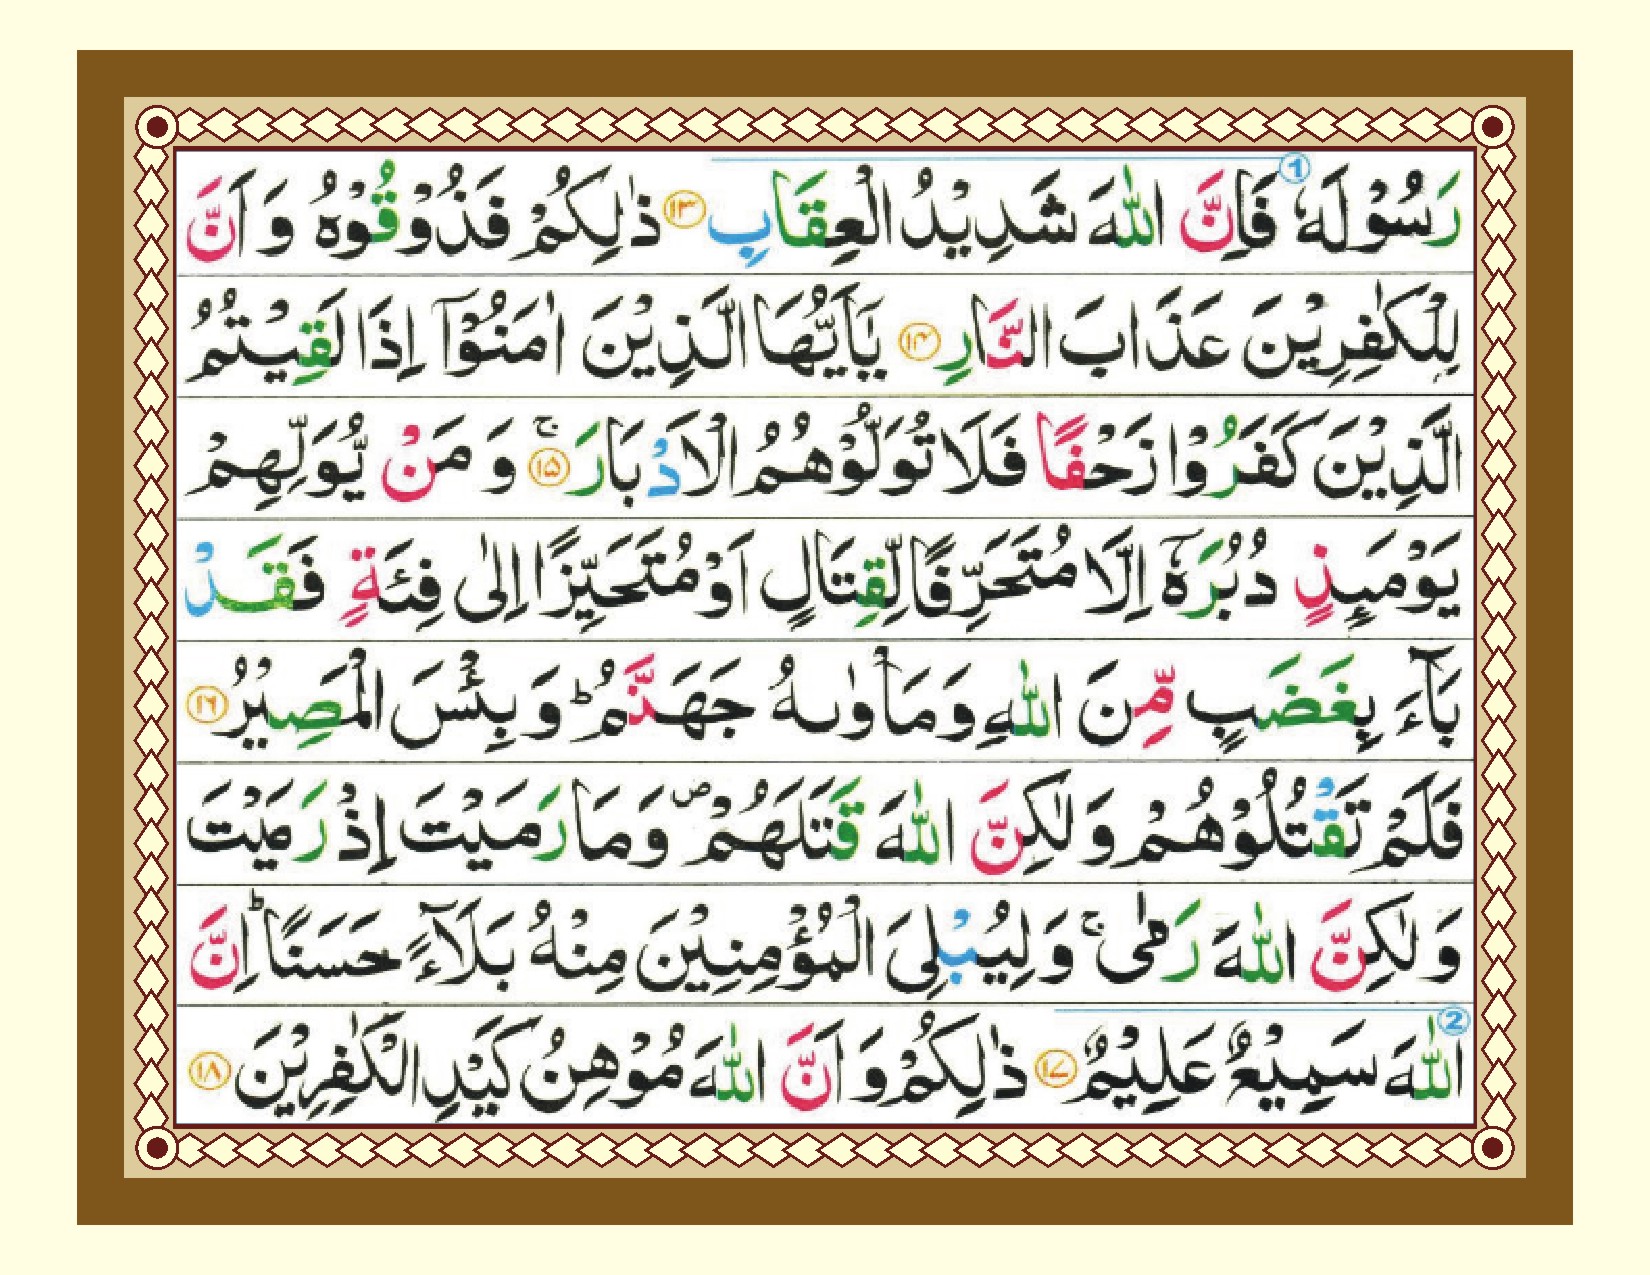 رَسُوۡلَهٗ ① فَاِنَّ اللّٰهَ شَدِيۡدُ الۡعِقَابِ ﴿۱۳﴾ ذٰلِكُمۡ فَذُوۡقُوۡهُ وَ اَنَّ
لِلۡكٰفِرِيۡنَ عَذَابَ النَّارِ ﴿۱۴﴾ يٰۤاَيُّهَا الَّذِيۡنَ اٰمَنُوۡۤا اِذَا لَقِيۡتُمُ
الَّذِيۡنَ كَفَرُوۡا زَحۡفًا فَلَا تُوَلُّوۡهُمُ الۡاَدۡبَارَ ۚ ﴿۱۵﴾ وَ مَنۡ يُّوَلِّهِمۡ
يَوۡمَىِٕذٍ دُبُرَهٗۤ اِلَّا مُتَحَرِّفًا لِّقِتَالٍ اَوۡ مُتَحَيِّزًا اِلٰى فِئَةٍ فَقَدۡ
بَآءَ بِغَضَبٍ مِّنَ اللّٰهِ وَمَاۡوٰٮهُ جَهَنَّمُ‌ؕ وَبِئۡسَ الۡمَصِيۡرُ ﴿۱۶﴾
فَلَمۡ تَقۡتُلُوۡهُمۡ وَلٰـكِنَّ اللّٰهَ قَتَلَهُمۡ ۖ وَمَا رَمَيۡتَ اِذۡ رَمَيۡتَ
وَ لٰـكِنَّ اللّٰهَ رَمٰى‌ ۚ وَلِيُبۡلِىَ الۡمُؤۡمِنِيۡنَ مِنۡهُ بَلَاۤءً حَسَنًا‌ ؕ اِنَّ
② اللّٰهَ سَمِيۡعٌ عَلِيۡمٌ ﴿۱۷﴾ ذٰلِكُمۡ وَ اَنَّ اللّٰهَ مُوۡهِنُ كَيۡدِ الۡكٰفِرِيۡنَ ﴿۱۸﴾